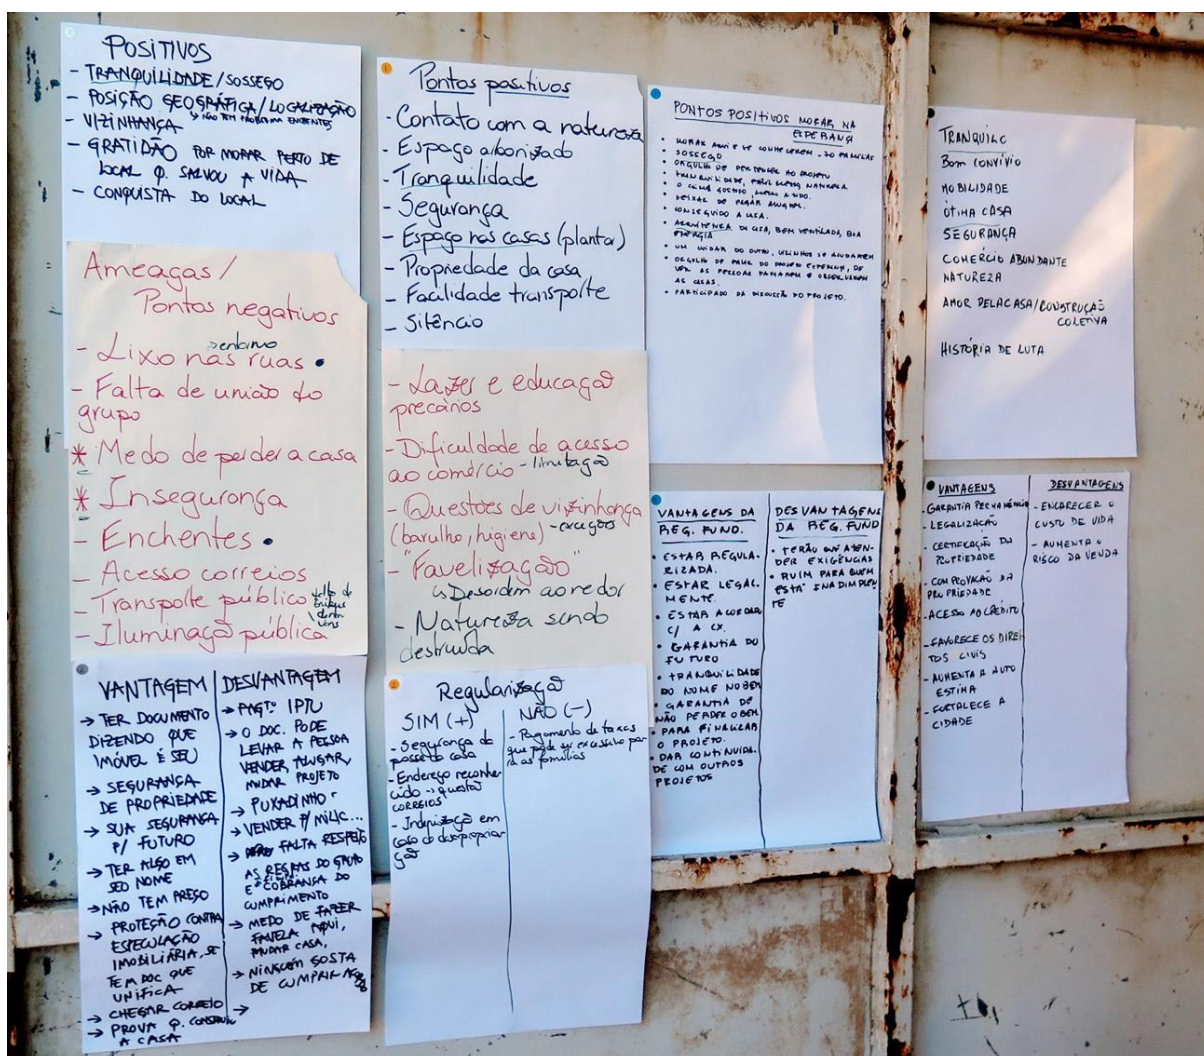 POSITIVOS
- TRANQUILIDADE/SOSSEGO
- POSIÇÃO GEOGRÁFICA/LOCALIZAÇÃO
↳ NÃO TEM PROBLEMA ENCHENTES
- VIZINHANÇA
- GRATIDÃO POR MORAR PERTO DE
LOCAL Q. SALVOU A VIDA
- CONQUISTA DO LOCAL
Ameaças/
Pontos negativos
- Lixo nas ruas •
> entorno
- Falta de união do
grupo
* Medo de perder a casa
* Insegurança
- Enchentes •
- Acesso correios
- Transporte público
- Iluminação pública
VANTAGEM
→ TER DOCUMENTO
DIZENDO QUE
IMÓVEL É SEU
→ SEGURANÇA
DE PROPRIEDADE
→ SUA SEGURANÇA
P/ FUTURO
→ TER ALGO EM
SEU NOME
→ NÃO TEM PREÇO
→ PROTEÇÃO CONTRA
ESPECULAÇÃO
IMOBILIÁRIA, SE
TEM DOC QUE
UNIFICA
→ CHEGAR CORREIO
→ PROVA Q. CONSTRUIU
A CASA
DESVANTAGEM
→ PAGTº IPTU
→ O DOC. PODE
LEVAR A PESSOA
VENDER, ALUGAR,
MUDAR PROJETO
→ PUXADINHO
→ VENDER P/ MILIC...
→ FALTA RESPEITO
AS REGRAS DO GRUPO
E COBRANSA DO
CUMPRIMENTO
→ MEDO DE FAZER
FAVELA AQUI,
MUDAR CASA,
→ NINGUÉM GOSTA
DE CUMPRIR
→
Pontos positivos
- Contato com a natureza
- Espaço arborizado
- Tranquilidade
- Segurança
- Espaço nas casas (plantar)
- Propriedade da casa
- Facilidade transporte
- Silêncio
- Lazer e educação
precários
- Dificuldade de acesso
ao comércio - limitação
- Questões de vizinhança
(barulho, higiene) - exceções
- "Favelização"
↳ Desordem ao redor
- Natureza sendo
destruída
Regularização
SIM (+)
- Segurança da
posse da casa
- Endereço reconhe-
cido → questão
CORREIOS
- Indenização em
caso de desapropria-
ção
NÃO (-)
- Pagamento de taxas
que pode ser excessivo pa-
ra as famílias
PONTOS POSITIVOS MORAR NA
ESPERANÇA
• MORAR AQUI E SE CONHECEREM - 70 FAMÍLIAS
• SOSSEGO
• ORGULHO DE PERTENCER AO PROJETO
• TRANQUILIDADE,
• O CLIMA GOSTOSO,
• DEIXAR DE PAGAR ALUGUEL.
• CONSEGUIDO A CASA.
• ARQUITETURA DA CASA, BEM VENTILADA, BOA
ENERGIA
• UM CUIDAR DO OUTRO, VIZINHOS SE AJUDAREM
• ORGULHO DE FALAR DO PROJETO ESPERANÇA, DE
VER AS PESSOAS PASSAREM E OBSERVAREM
AS CASAS.
• PARTICIPADO DA DISCUSSÃO DO PROJETO.
VANTAGENS DA
REG. FUND.
• ESTAR REGULA-
RIZADA.
• ESTAR LEGAL-
MENTE.
• ESTAR ACORDADO
C/ A CX.
• GARANTIA DO
FUTURO
• TRANQUILIDADE
DO NOME NO BEM
• GARANTIA DE
NÃO PERDER O BEM
• PARA FINALIZAR
O PROJETO.
• DAR CONTINUIDA-
DE COM OUTROS
PROJETOS
DESVANTAGENS
DA REG. FUND
• TERÃO QUE ATEN-
DER EXIGÊNCIAS
• RUIM PARA QUEM
ESTÁ INADIMPLEN
TE
TRANQUILO
BOM CONVÍVIO
MOBILIDADE
ÓTIMA CASA
SEGURANÇA
COMÉRCIO ABUNDANTE
NATUREZA
AMOR PELA CASA/CONSTRUÇÃO
COLETIVA
HISTÓRIA DE LUTA
VANTAGENS
- GARANTIA PERMANÊNCIA
- LEGALIZAÇÃO
- CERTIFICAÇÃO DA
PROPRIEDADE
- COMPROVAÇÃO DA
PROPRIEDADE
- ACESSO AO CRÉDITO
- FAVORECE OS DIREI
TOS CIVIS
- AUMENTA A AUTO
ESTIMA
- FORTALECE A
CIDADE
DESVANTAGENS
- ENCARECER O
CUSTO DE VIDA
- AUMENTA O
RISCO DA VENDA